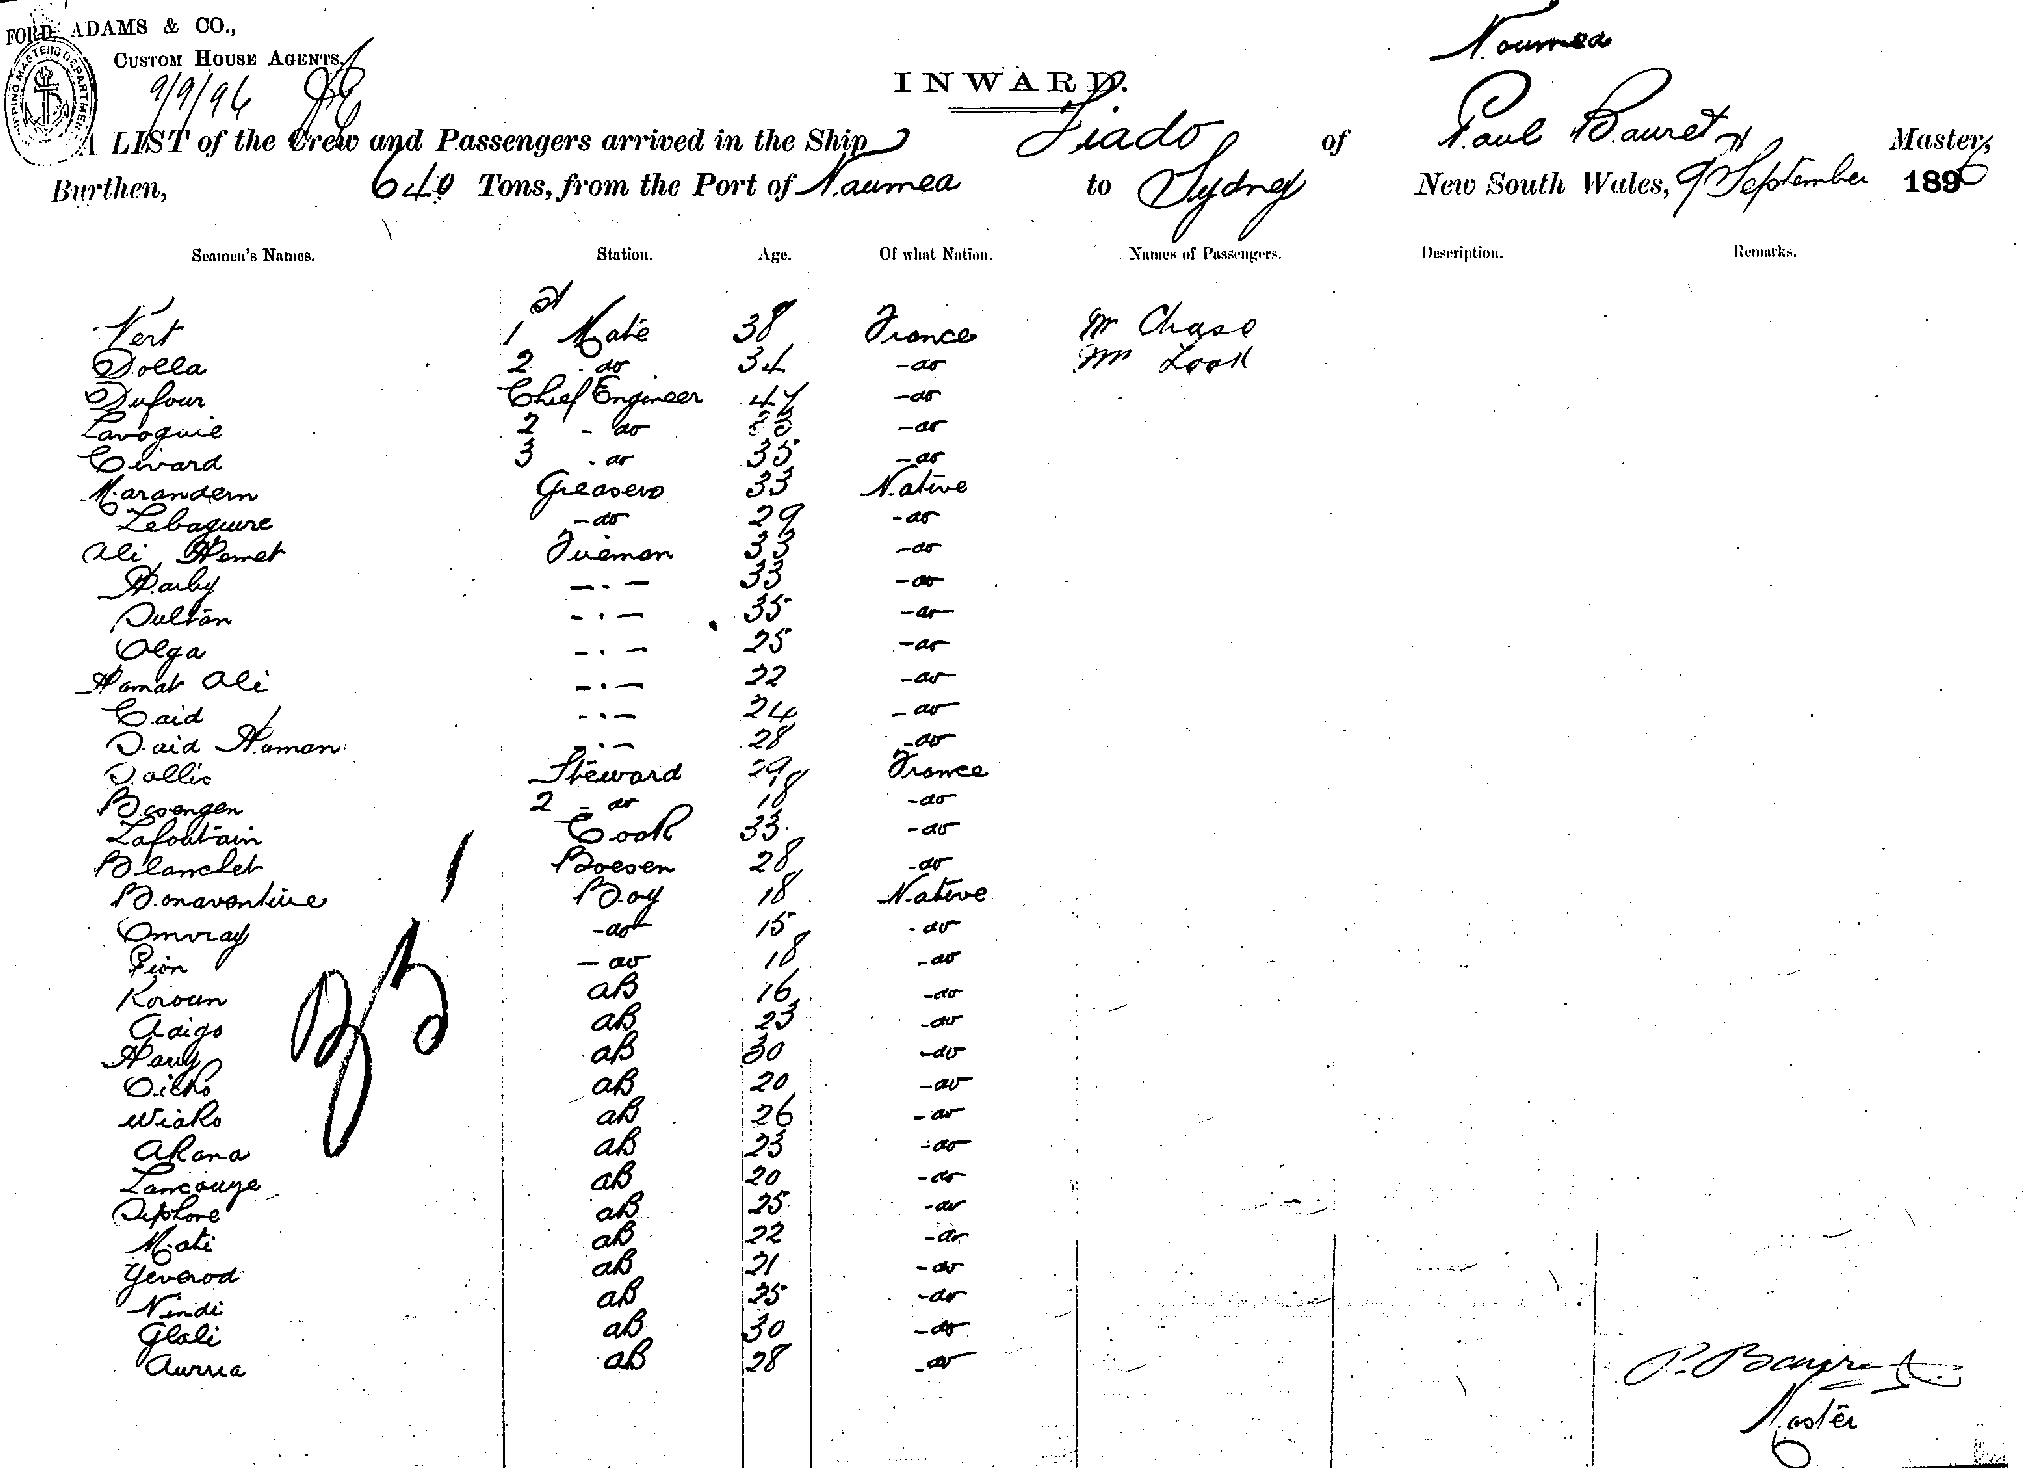 FORD, ADAMS & CO.,
CUSTOM HOUSE AGENTS.
9/9/96
Noumea
INWARD.
A LIST of the Crew and Passengers arrived in the Ship Tiado of Paul Bauret Master,
Burthen, 640 Tons, from the Port of Noumea to Sydney New South Wales, 9 September 1896
Seamen's Names. Station. Age. Of what Nation. Names of Passengers. Description. Remarks.
Vert 1st Mate 38 France Mr Chase
Dolla 2 do 34 -do Mr Look
Dufour Chief Engineer 47 -do
Lavoguie 2 - do -do
Civard 3 - do 35 -do
Marandern Greasers 33 Native
Lebaguire -do 29 -do
Ali Hemet Fireman 33 -do
Harby - . - 33 -do
Sultan - . - 35 -do
Olga - . - 25 -do
Hamat Ali - . - 22 -do
Caid - . - 24 -do
Said Haman - . - 28 -do
Sallic Steward 29 France
Besengen 2 - do 18 -do
Lafoutain Cook 33 -do
Blanclet Boesen 28 -do
Bonaventure Boy 18 Native
Omvray -do 15 -do
Pion -do 18 -do
Koroun AB 16 -do
Adigo AB 23 -do
Harry AB 30 -do
Cilho AB 20 -do
Wiako AB 26 -do
Akana AB 23 -do
Lancouye AB 20 -do
Siphore AB 25 -do
Mati AB 22 -do
Yeverod AB 21 -do
Nindi AB 25 -do
Glali AB 30 -do
Aurria AB 28 -do
P. Bauret
Master